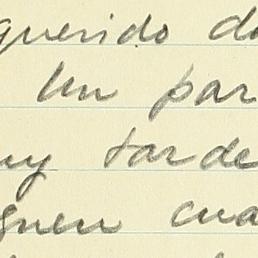 querido do
Un par
uy tarde
gnen cua